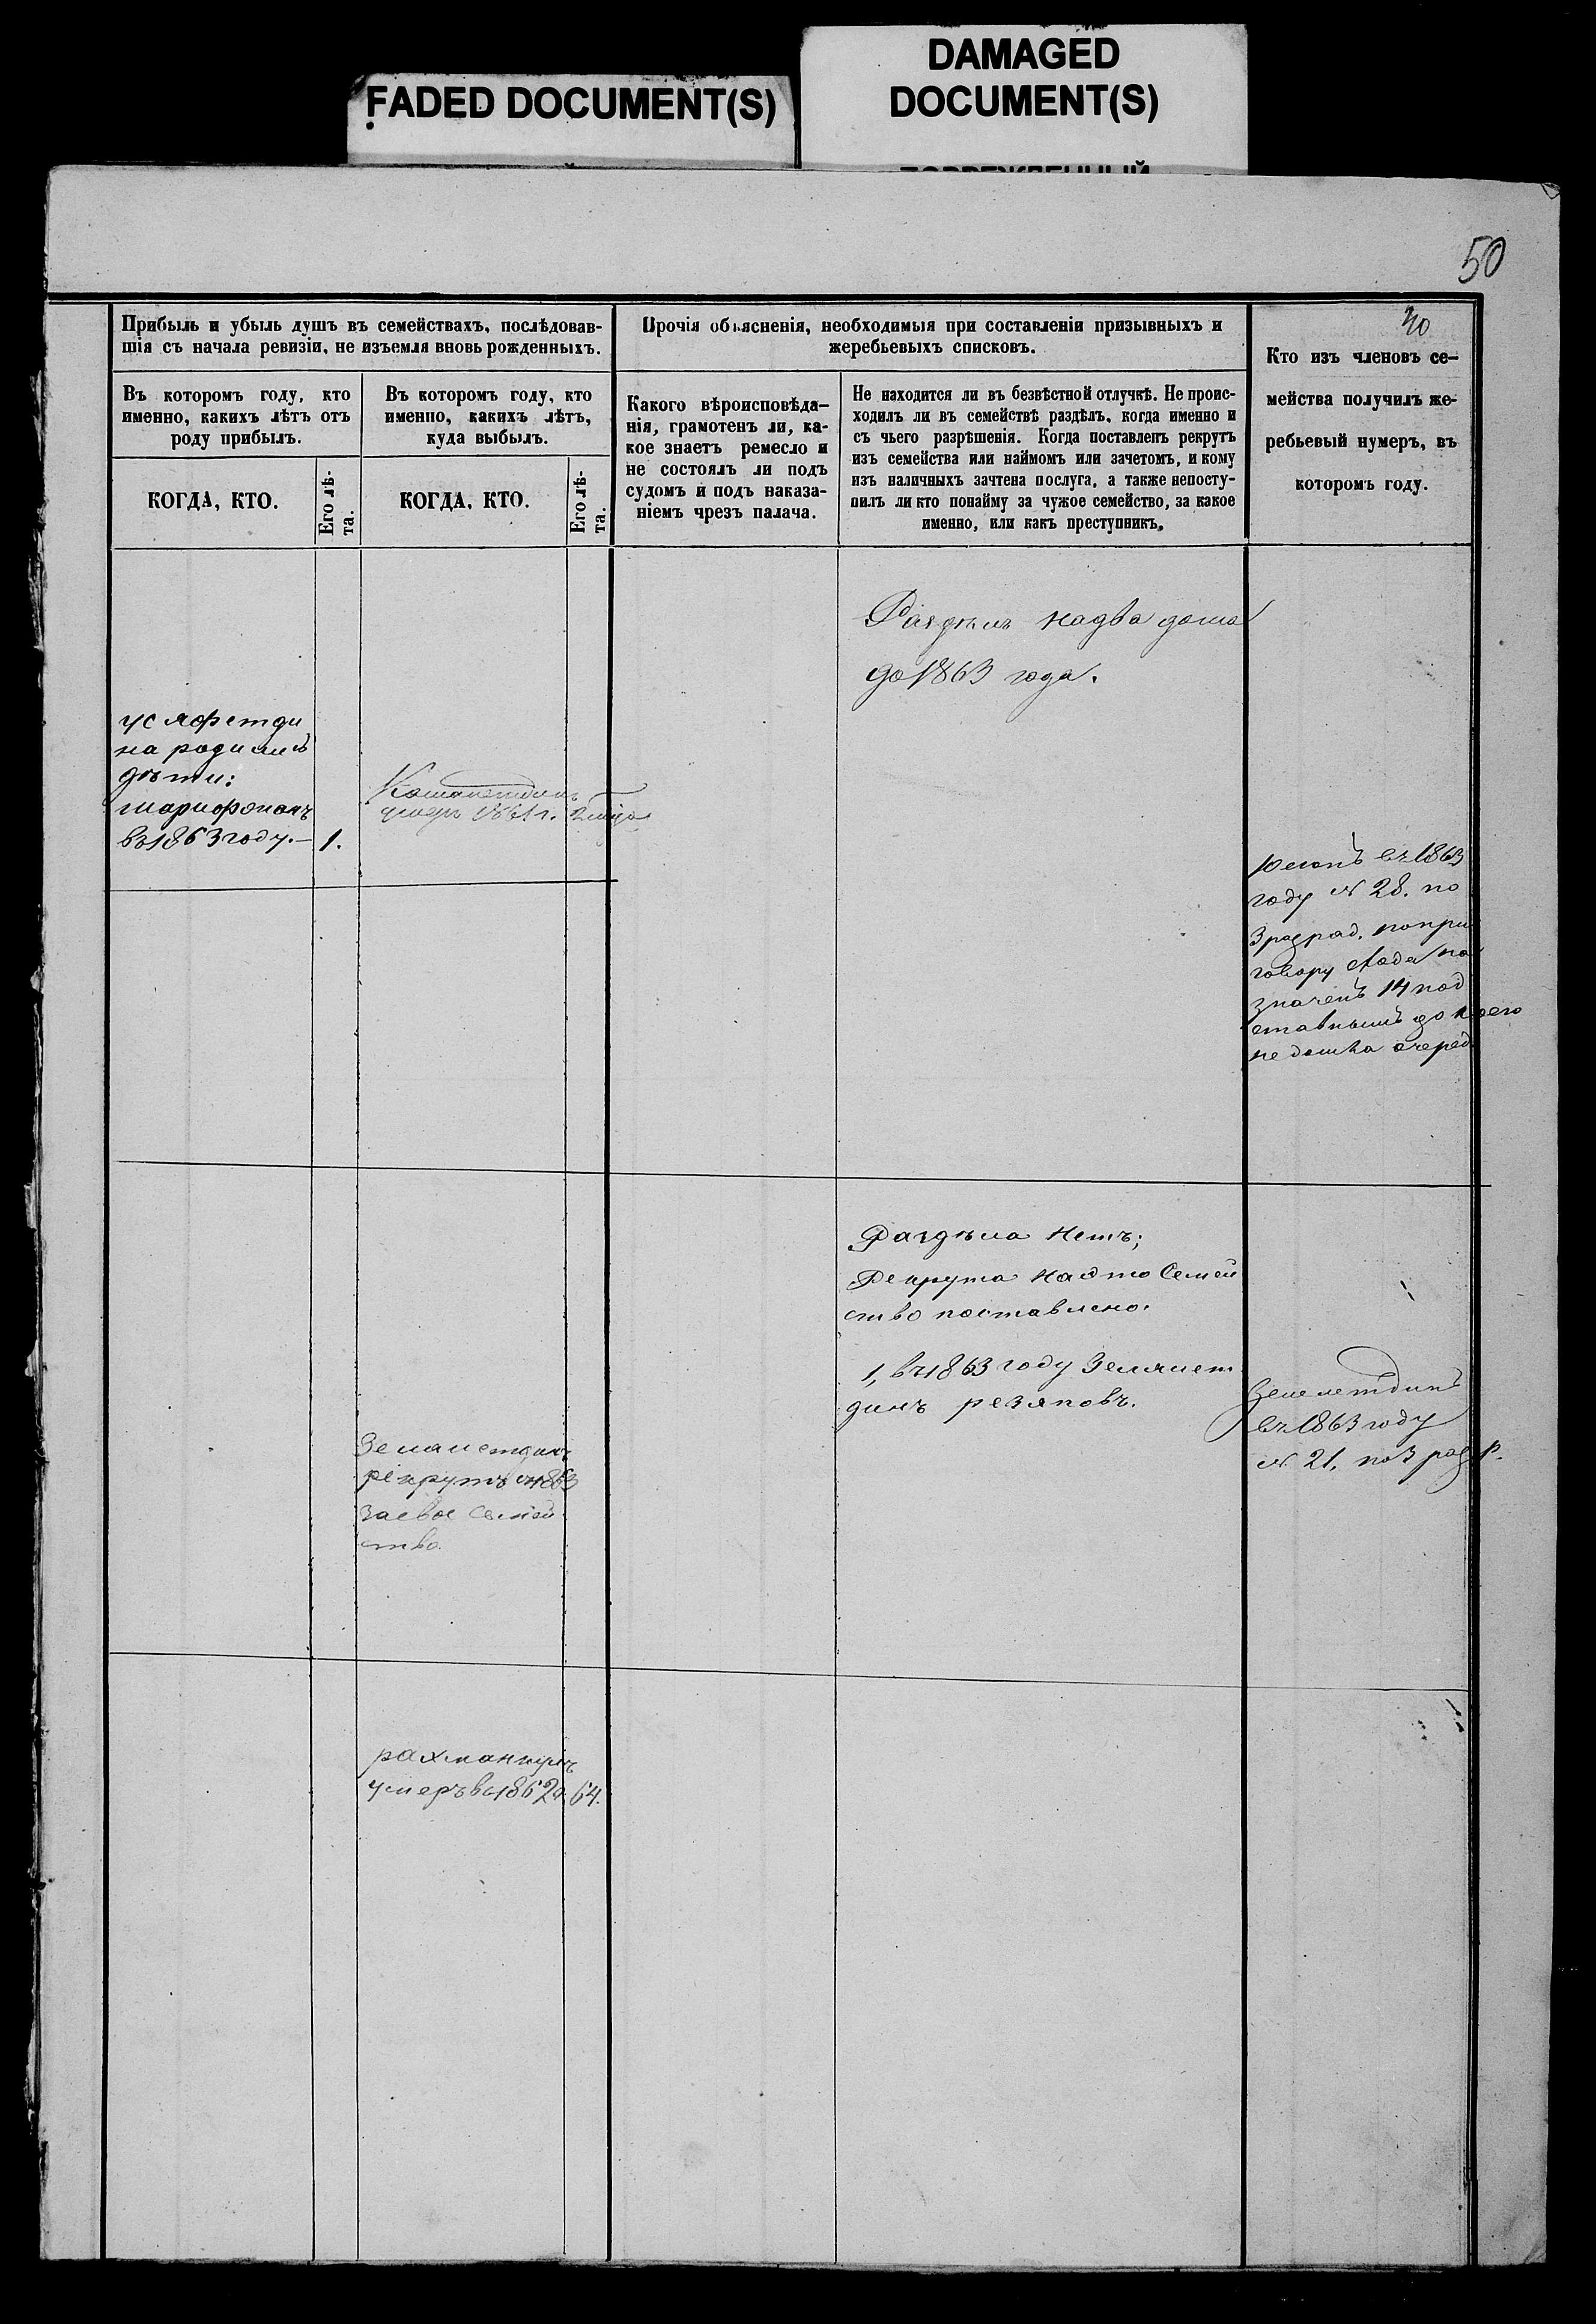 FADED DOCUMENT(S)
DAMAGED
DOCUMENT(S)
50
40
Прибыль и убыль душъ въ семействахъ, послѣдовав-
шія съ начала ревизіи, не изъемля вновь рожденныхъ.
Въ которомъ году, кто
именно, какихъ лѣтъ отъ
роду прибылъ.
КОГДА, КТО.
Его лѣ-
та.
Въ которомъ году, кто
именно, какихъ лѣтъ,
куда выбылъ.
КОГДА, КТО.
Его лѣ-
та.
Прочія объясненія, необходимыя при составленіи призывныхъ и
жеребьевыхъ списковъ.
Какого вѣроисповѣда-
нія, грамотенъ ли, ка-
кое знаетъ ремесло и
не состоялъ ли подъ
судомъ и подъ наказа-
ніемъ чрезъ палача.
Не находится ли въ безвѣстной отлучкѣ. Не проис-
ходилъ ли въ семействѣ раздѣлъ, когда именно и
съ чьего разрѣшенія. Когда поставленъ рекрутъ
изъ семейства или наймомъ или зачетомъ, и кому
изъ наличныхъ зачтена послуга, а также непосту-
пилъ ли кто понайму за чужое семейство, за какое
именно, или какъ преступникъ.
Кто изъ членовъ се-
мейства получилъ же-
ребьевый нумеръ, въ
которомъ году.
Раздѣлъ на два дома
до 1863 года.
ус яфетди
на родились
дѣти:
шарифжанъ
въ 1863 году. — 1.
умеръ 1861 г.
въ 1863
году № 28. по
3 разряд. по при
говору
значенъ 14 под
ставнымъ до коего
не дошла очеред
Раздѣла нетъ;
Рекрута на это семей
ство поставлено.
1, въ 1863 году Землянет
динъ резяповъ.
Землетдинъ
въ 1863 году
№ 21, по 3 разр.
рекрутъ 1863
за свое семей
ство.
рахманкулъ
умеръ въ 1862 г. 64.